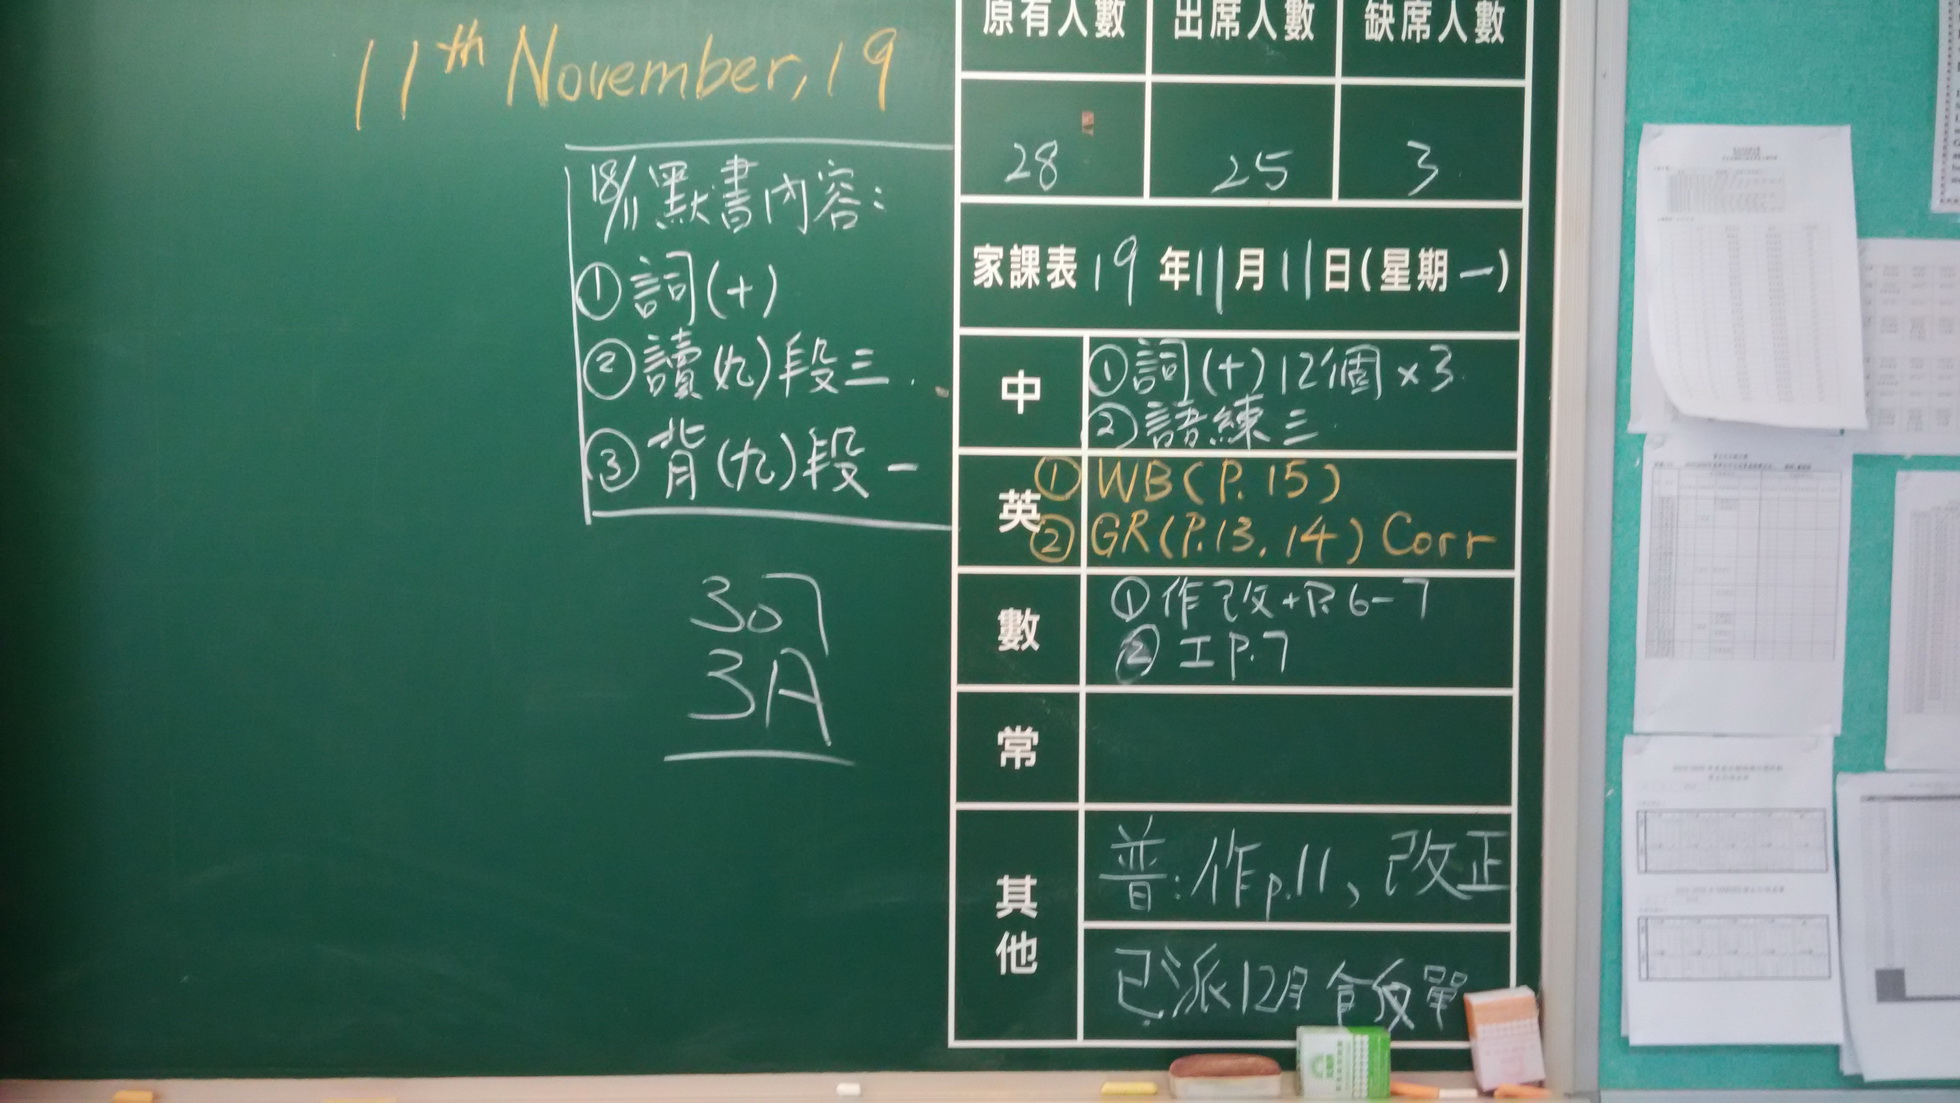 11th November, 19
18/11 默書內容:
①詞(十)
②讀(九)段三
③背(九)段一
307
3A
原有人數 出席人數 缺席人數
28 25 3
家課表 19 年 11 月 11 日(星期一)
中 ①詞(十)12個×3
②語練三
英 ① WB(P.15)
② GR(P.13, 14) Corr
數 ①作改+P.6-7
② 工P.7
常
其他
普:作p.11、改正
已派12月飯單